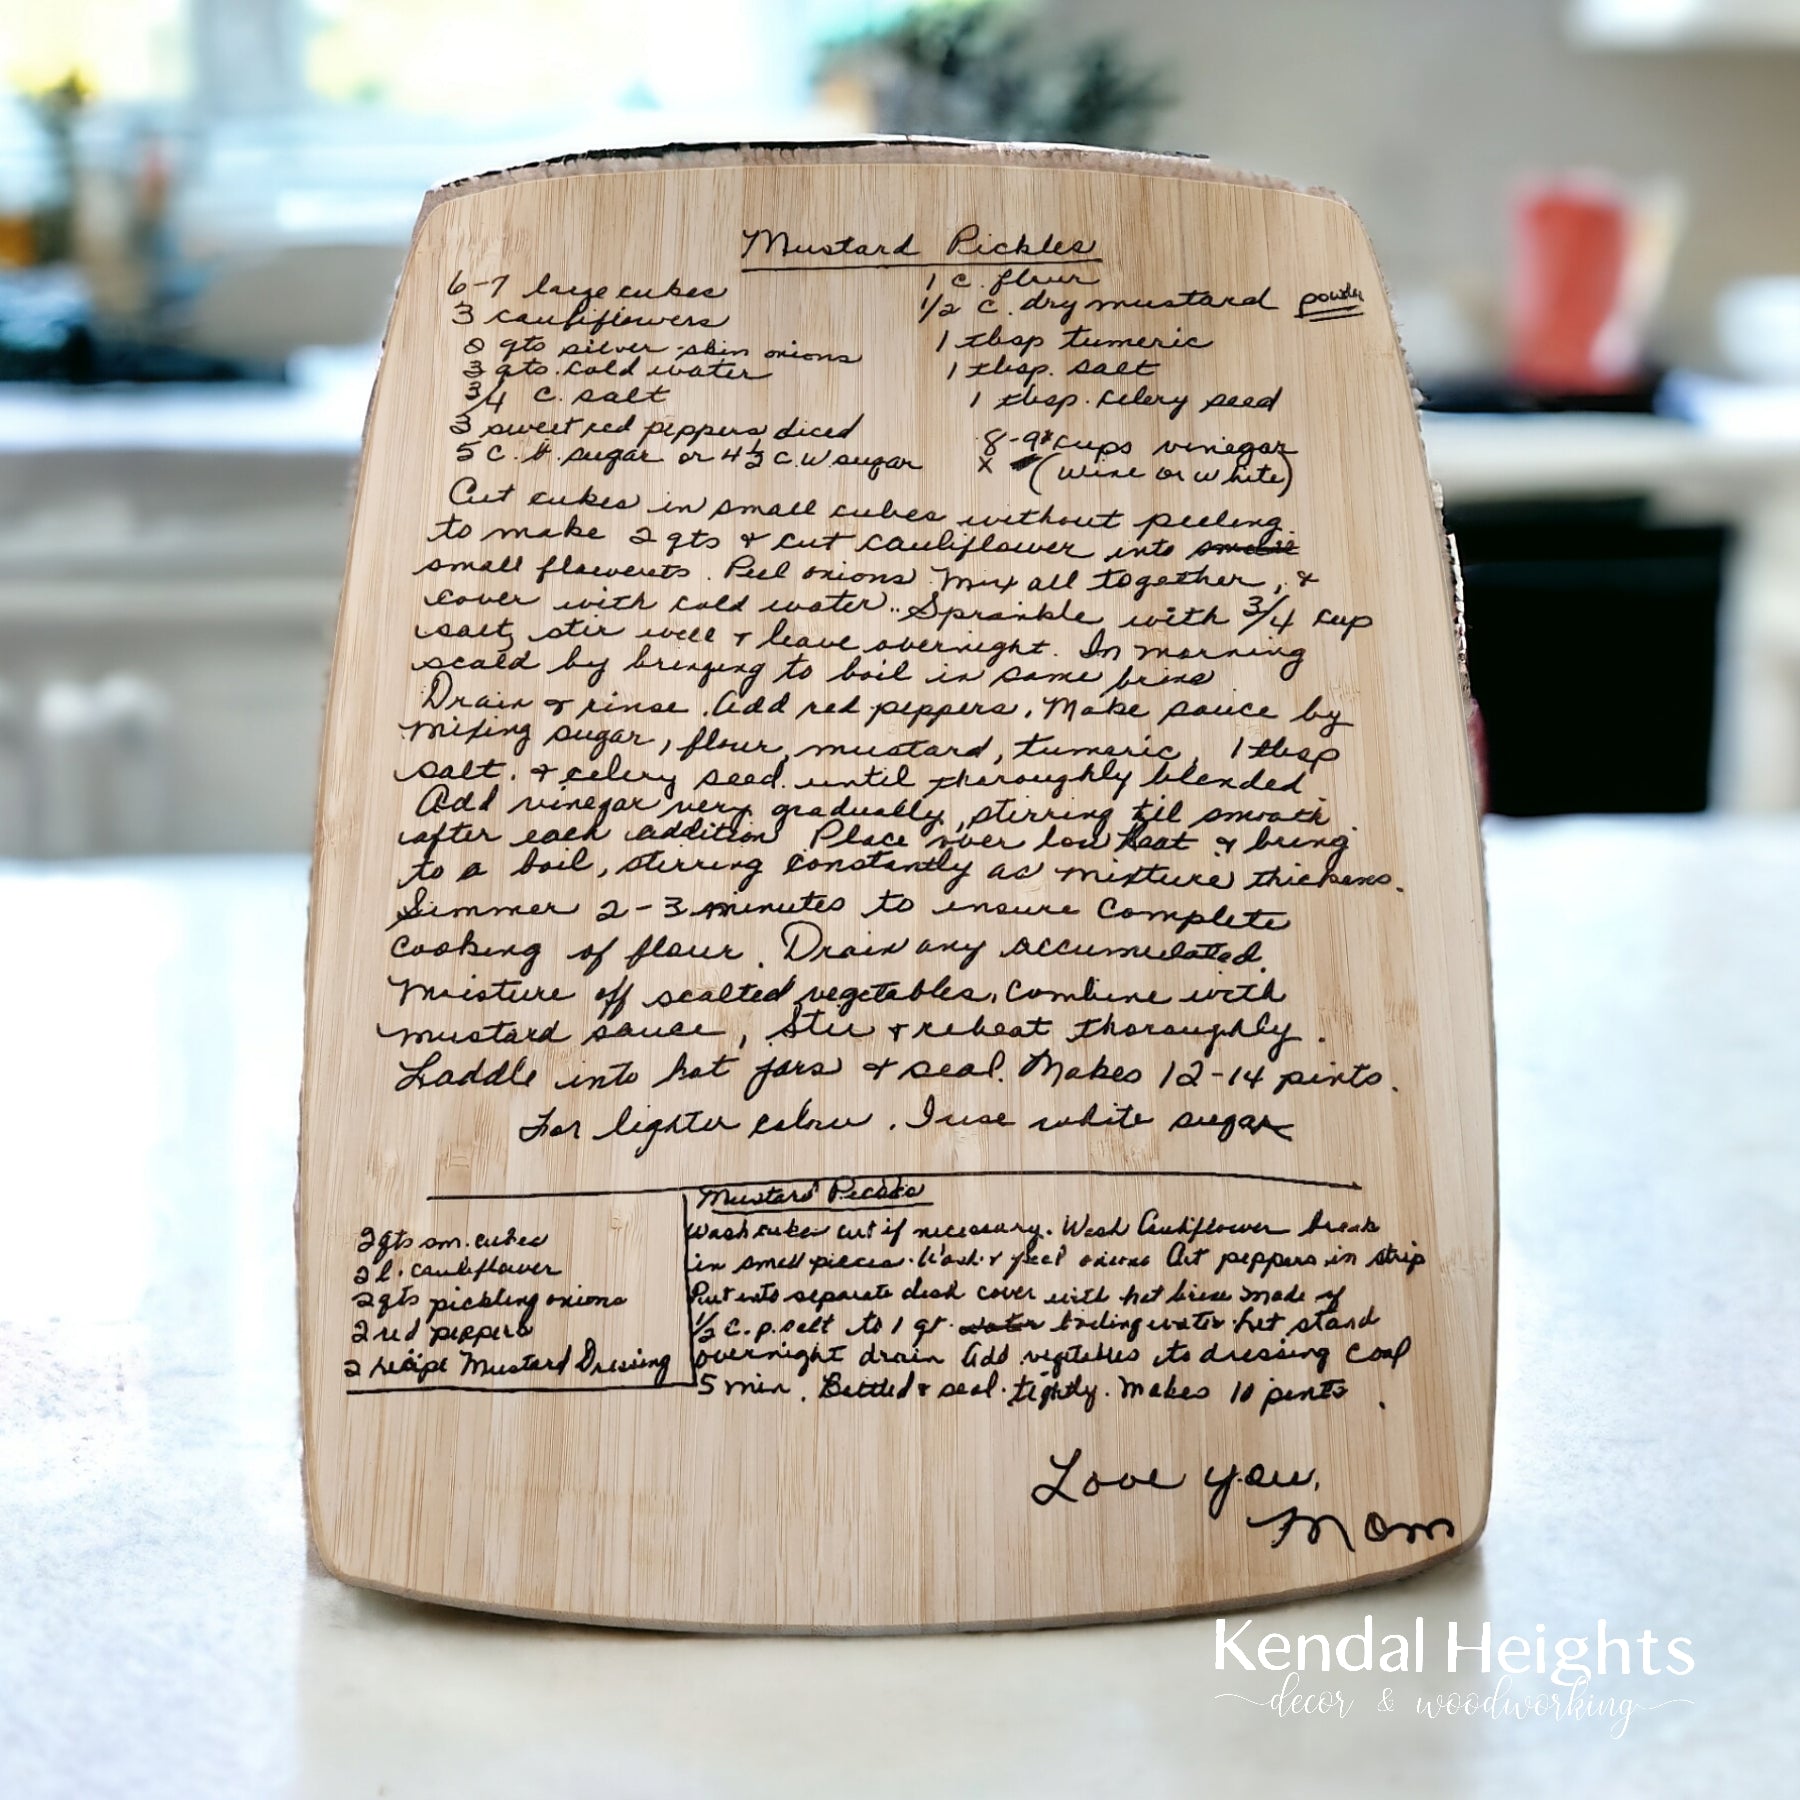 Mustard Pickles
6-7 large cukes
3 cauliflowers
qts silver-skin onions
3 qts. cold water
3/4 c. salt
3 sweet red peppers diced
5 c. b. sugar or 4 1/2 c. w sugar
1 c. flour
1/2 c. dry mustard powder
1 tbsp tumeric
1 tbsp. salt
1 tbsp. celery seed
8-9 cups vinegar
x (wine or white)
Cut cukes in small cubes without peeling.
to make 2 qts & cut cauliflower into
small flowerets. Peel onions. Mix all together, &
cover with cold water.. Sprinkle with 3/4 cup
salt, stir well & leave overnight. In morning
scald by bringing to boil in same brine
Drain & rinse. Add red peppers. Make sauce by
mixing sugar, flour, mustard, tumeric, 1 tbsp
salt. & celery seed. until thoroughly blended
Add vinegar very gradually, stirring til smooth
after each addition Place over low heat & bring
to a boil, stirring constantly as mixture thickens.
Simmer 2-3 minutes to ensure complete
cooking of flour. Drain any accumulated
moisture off scalted vegetables, combine with
mustard sauce, Stir & reheat thoroughly.
Laddle into hot jars & seal. Makes 12-14 pints.
For lighter colour. I use white sugar
2 qts sm. cukes
2 l. cauliflower
2 qts pickling onions
2 red peppers
2 recipe Mustard Dressing
Mustard
Wash cukes cut if necessary. Wash Cauliflower break
in small pieces. Wash & peel onions Cut peppers in strip
Put into separate dish cover with hot brine made of
1/2 c. p. salt to 1 qt. boiling water let stand
overnight drain Add vegetables to dressing
5 min. Bottled & seal tightly. Makes 10 pints.
Love you,
Mom
Kendal Heights
decor & woodworking